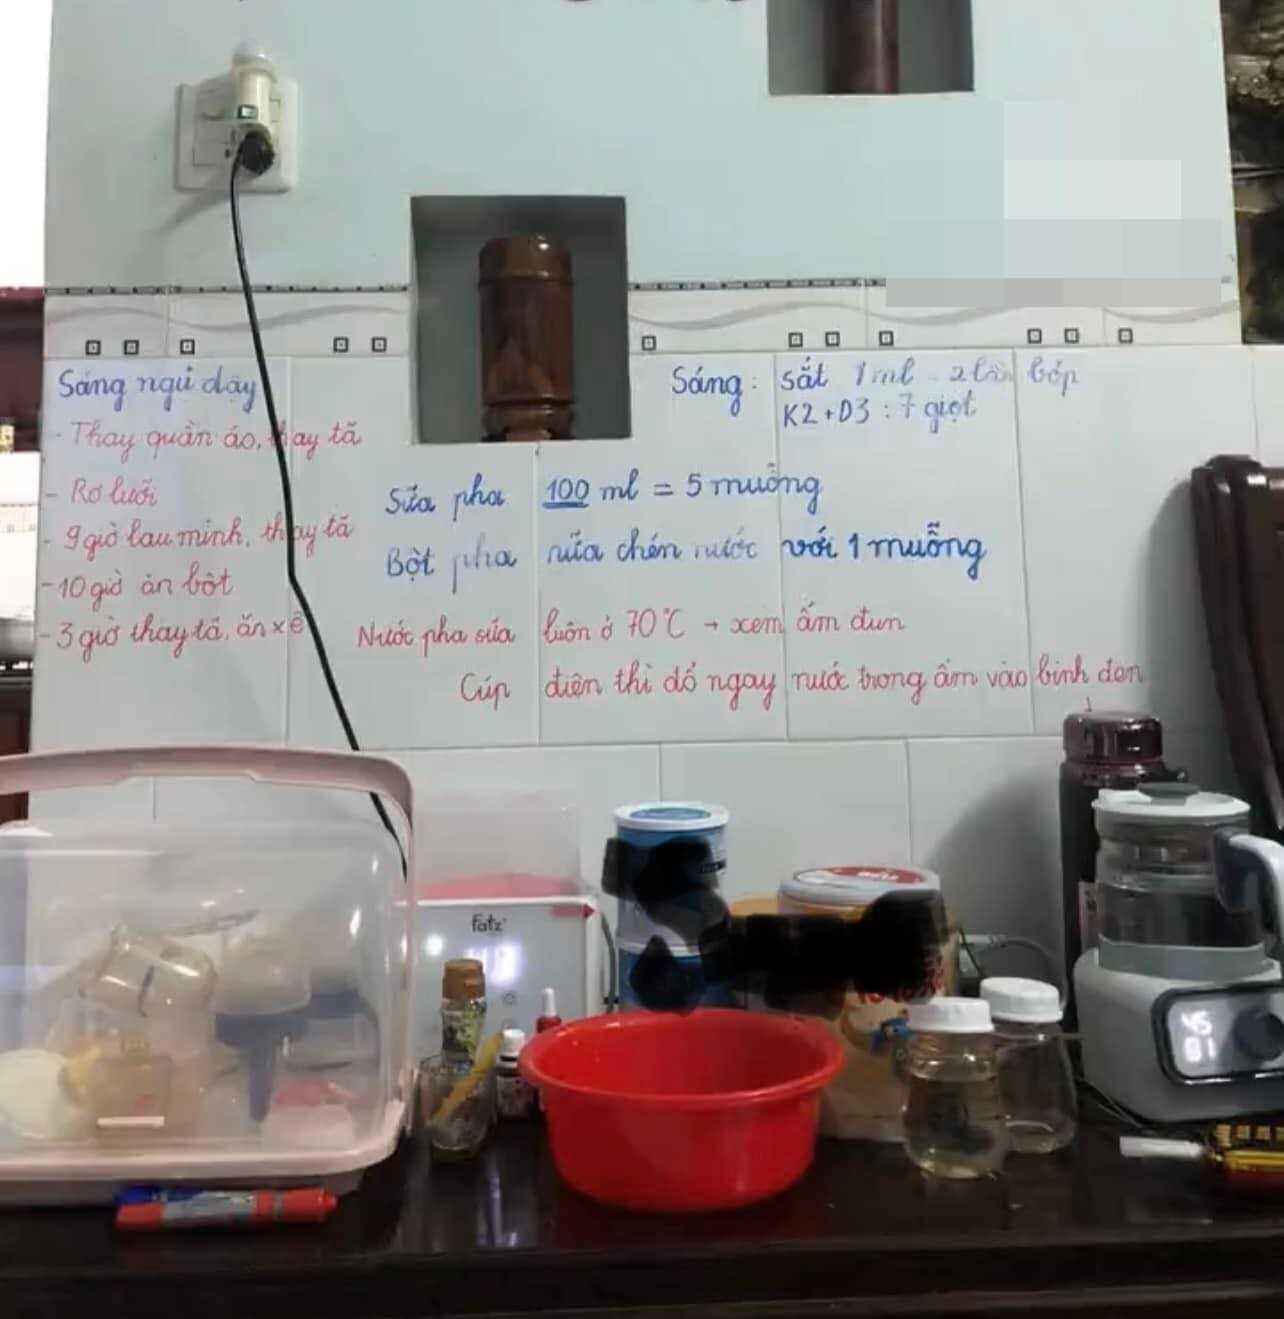 Sáng ngủ dậy
- Thay quần áo, thay tã
- Rơ lưỡi
- 9 giờ lau mình, thay tã
- 10 giờ ăn bột
- 3 giờ thay tã, ăn xế
Sáng: sắt 1 ml - 2 lần bóp
K2+D3: 7 giọt
Sữa pha 100 ml = 5 muỗng
Bột pha nửa chén nước với 1 muỗng
Nước pha sữa luôn ở 70°C → xem ấm đun
Cúp điện thì đổ ngay nước trong ấm vào bình đen
fatz